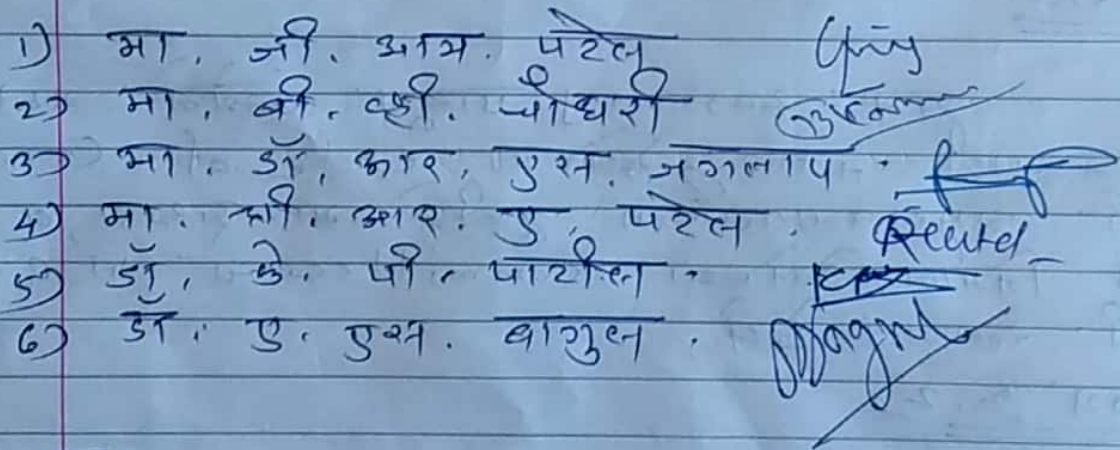 1) मा. जी. आय. पटेल
2) मा. बी. व्ही. चौधरी
3) मा. डॉ. आर. एस. जगताप.
4) मा. श्री. आर. ए. पटेल.
5) डॉ. के. पी. पाटील.
6) डॉ. ए. एस. बागुल.